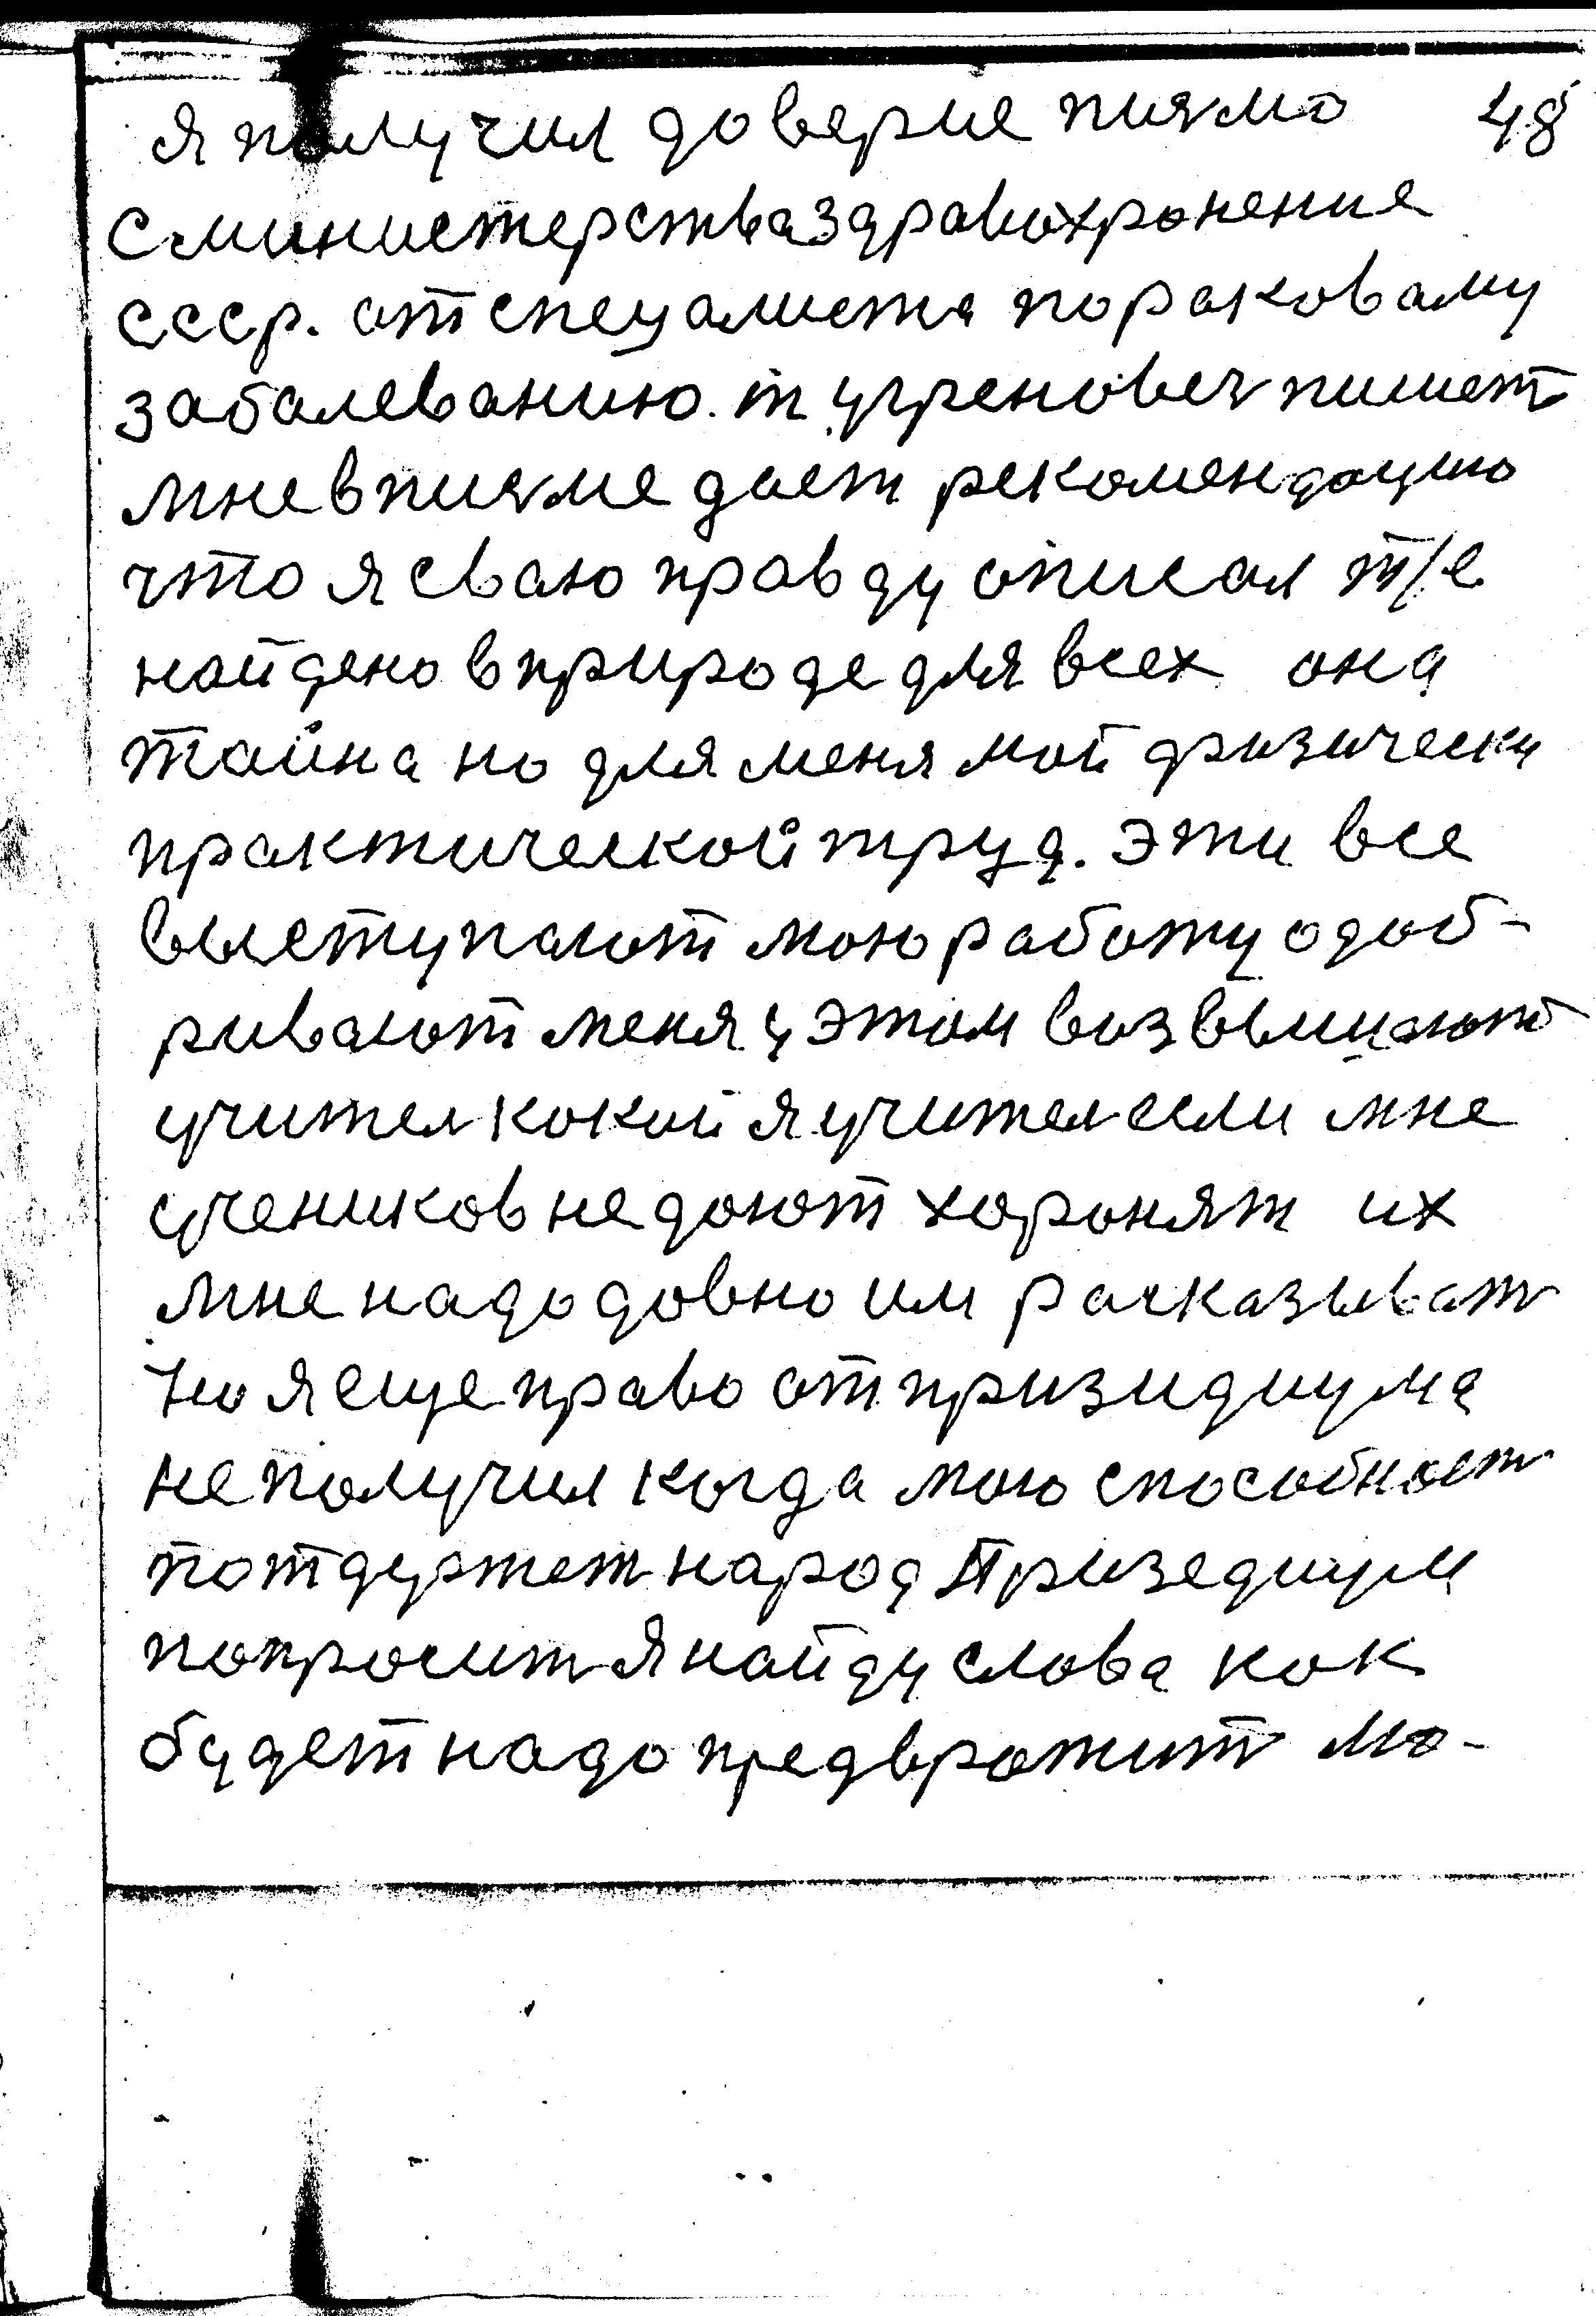 я получил доверие писмо 48
с министерства здравохронение
СССР. от спецалиста по раковаму
заболеванию. т угреновеч пишет
мне в писме дает рекомендацию
что я сваю правду описал т/е
найдено в природе для всех она
тайна но для меня мой физически
практичелкой труд. Эти все
выступают мою работу одоб-
ривают меня у этом возвышают
учител какой я учител если мне
учеников не дают хоронят их
мне надо довно им расказыват
Но я еще право от призидиума
не получил когда мою способност
потдержет народ Призедиум
попросит я найду слова как
будет надо предвротит мо-